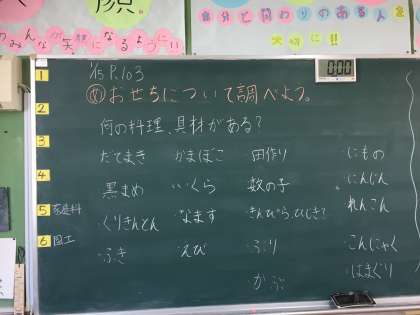 自分と関わりのある人を
大切に!!
みんなが笑顔になるように
1
1/15 P.103
め おせちについて調べよう。
2
何の料理、具材がある?
3
だてまき かまぼこ 田作り にもの
4
黒まめ いくら 数の子 にんじん
5 家庭科
くりきんとん なます きんぴら、ひじき? れんこん
6 図工
ふき えび ぶり こんにゃく
かぶ はまぐり
0:00